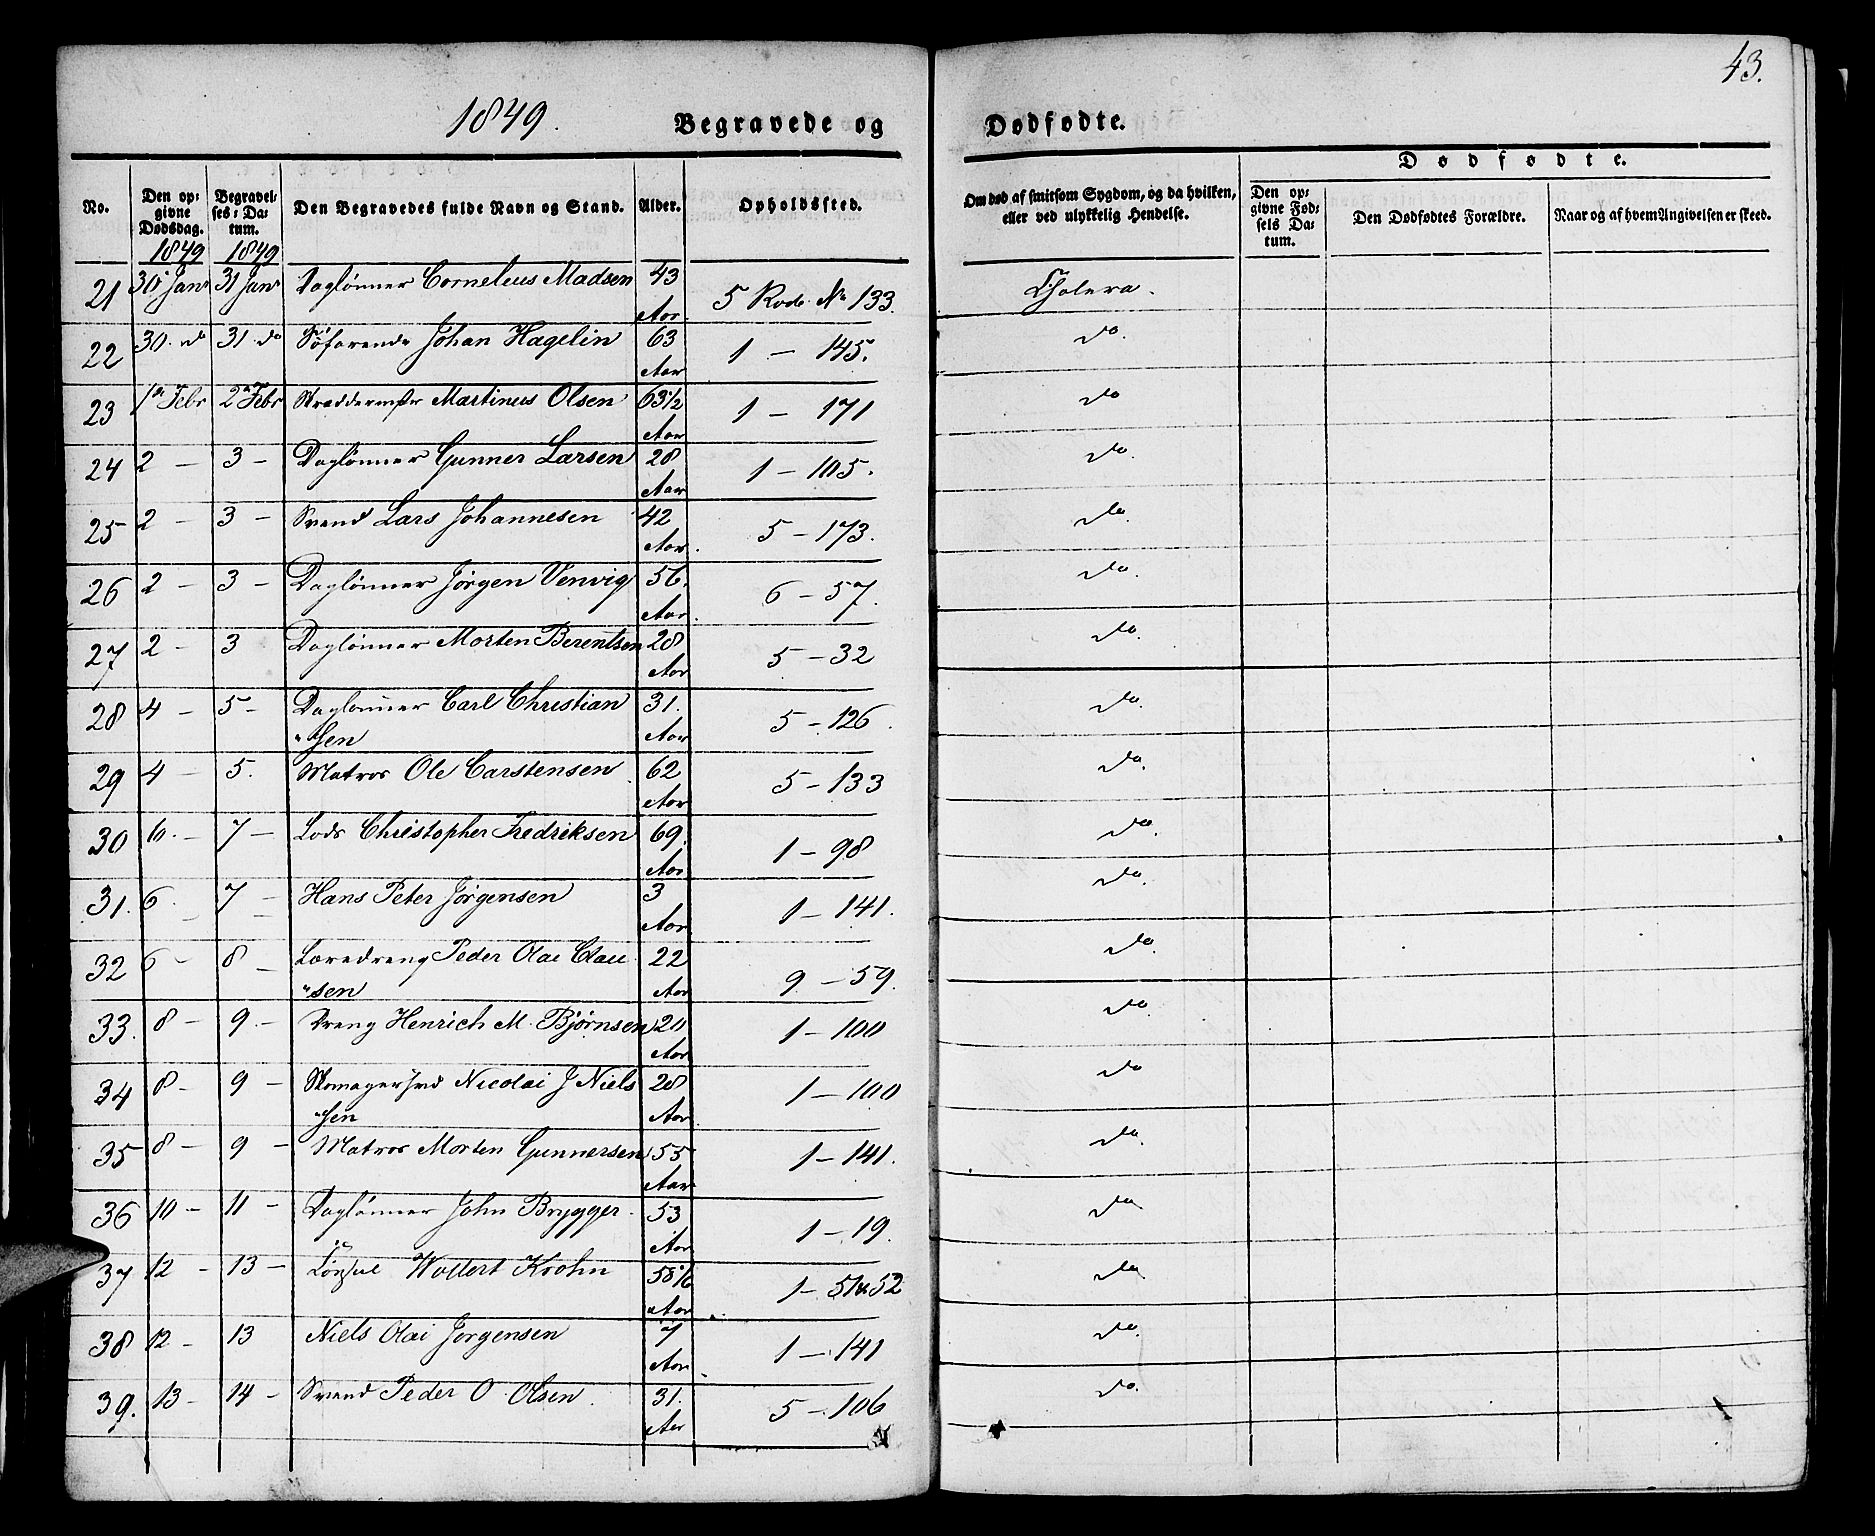 43.
1849. Begravede og Dødfødte.
No. Den opgivne Dødsdag. 1849 Begravelses-Datum. 1849 Den Begravedes fulde Navn og Stand. Alder. Opholdssted. Om død af smitsom Sygdom, og da hvilken, eller ved ulykkelig Hendelse. Dødfødte. Den opgivne Fødsels Datum. Den Dødfødtes Forældre. Naar og af hvem Angivelsen er skeed.
21 30 Janr 31 Janr Daglønner Cornelius Madsen 43 Aar. 5 Rode No 133. Cholera.
22 30. do 31. do Søfarende Johan Hagelin 63 Aar 1 — 145. do.
23 1ste Febr 2n Febr Skræddermstr Martinus Olsen 63 1/2 Aar 1 — 171 do
24 2 — 3 — Daglønner Gunner Larsen 28 Aar 1 — 105. do.
25 2 — 3 — Svend Lars Johannesen 42 Aar. 5 — 173. do.
26 2 — 3 — Daglønner Jørgen Venvig 56. Aar. 6 — 57. do.
27 2 — 3 Daglønner Morten Berentsen 28 Aar 5 — 32 do.
28 4 — 5 — Daglønner Carl Christian
"sen 31. Aar 5 — 126. do.
29 4 — 5. Matros Ole Carstensen 62 Aar 5 — 133 do.
30 6. — 7 — Lods Christopher Fredriksen 69. Aar 1 — 98 do.
31. 6. — 7 — Hans Peter Jørgensen 3 Aar 1 — 141. do.
32 6 — 8 — Læredreng Peder Olai Clau
"sen 22 Aar 9 — 59. do.
33. 8 — 9. — Dreng Henrich M. Bjørnsen 20 Aar 1 — 100 do.
34 8 — 9 — Skomagersvd Nicolai J Niels
"sen 28 Aar. 1 — 100 do
35 8 — 9 — Matros Morten Gunnersen 55 Aar 1 — 141. do.
36 10 — 11 — Daglønner John Brygger. 53 Aar 1 — 19. do
37 12 — 13 — Consul Wollert Krohn 58 1/6 Aar 1 — 51 & 52 do.
38 12 — 13 Niels Olai Jørgensen 7 Aar. 1 — 141 do.
39. 13 — 14 — Svend Peder O. Olsen. 31. Aar 5 — 106 do.